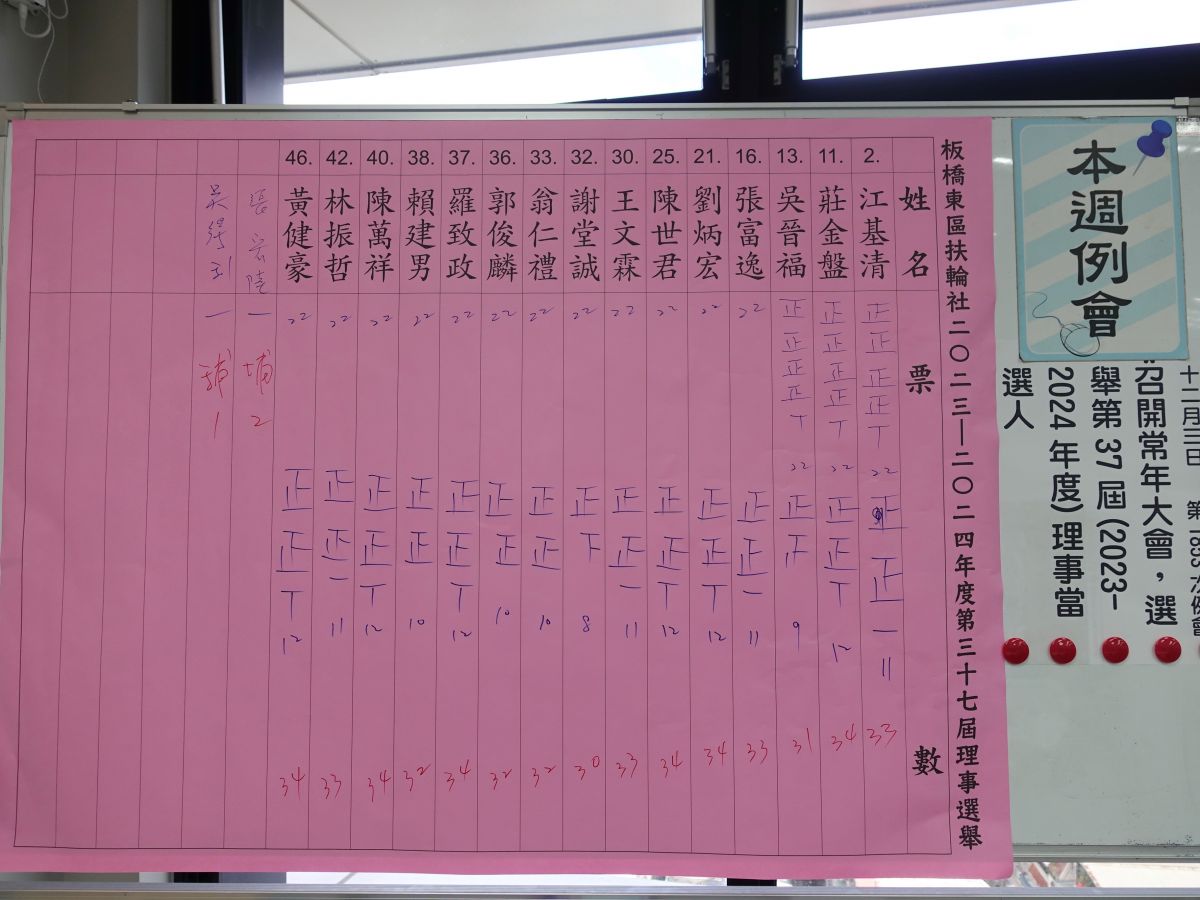 本週例會
十二月三日
召開常年大會，選
舉第 37 屆 (2023-
2024 年度) 理事當
選人
板橋東區扶輪社二〇二三—二〇二四年度第三十七屆理事選舉
姓名 票數
2. 江基清 正正正正丅 22 正正一 11 33
11. 莊金盤 正正正正丅 22 正正丅 12 34
13. 吳晉福 正正正正丅 22 正 9 31
16. 張富逸 22 正正一 11 33
21. 劉炳宏 22 正正丅 12 34
25. 陳世君 22 正正丅 12 34
30. 王文霖 22 正正一 11 33
32. 謝堂誠 22 正下 8 30
33. 翁仁禮 22 正正 10 32
36. 郭俊麟 22 正正 10 32
37. 羅致政 22 正正丅 12 34
38. 賴建男 22 正正 10 32
40. 陳萬祥 22 正正丅 12 34
42. 林振哲 22 正正一 11 33
46. 黃健豪 22 正正丅 12 34
張宏陸 一 2
吳 一 1